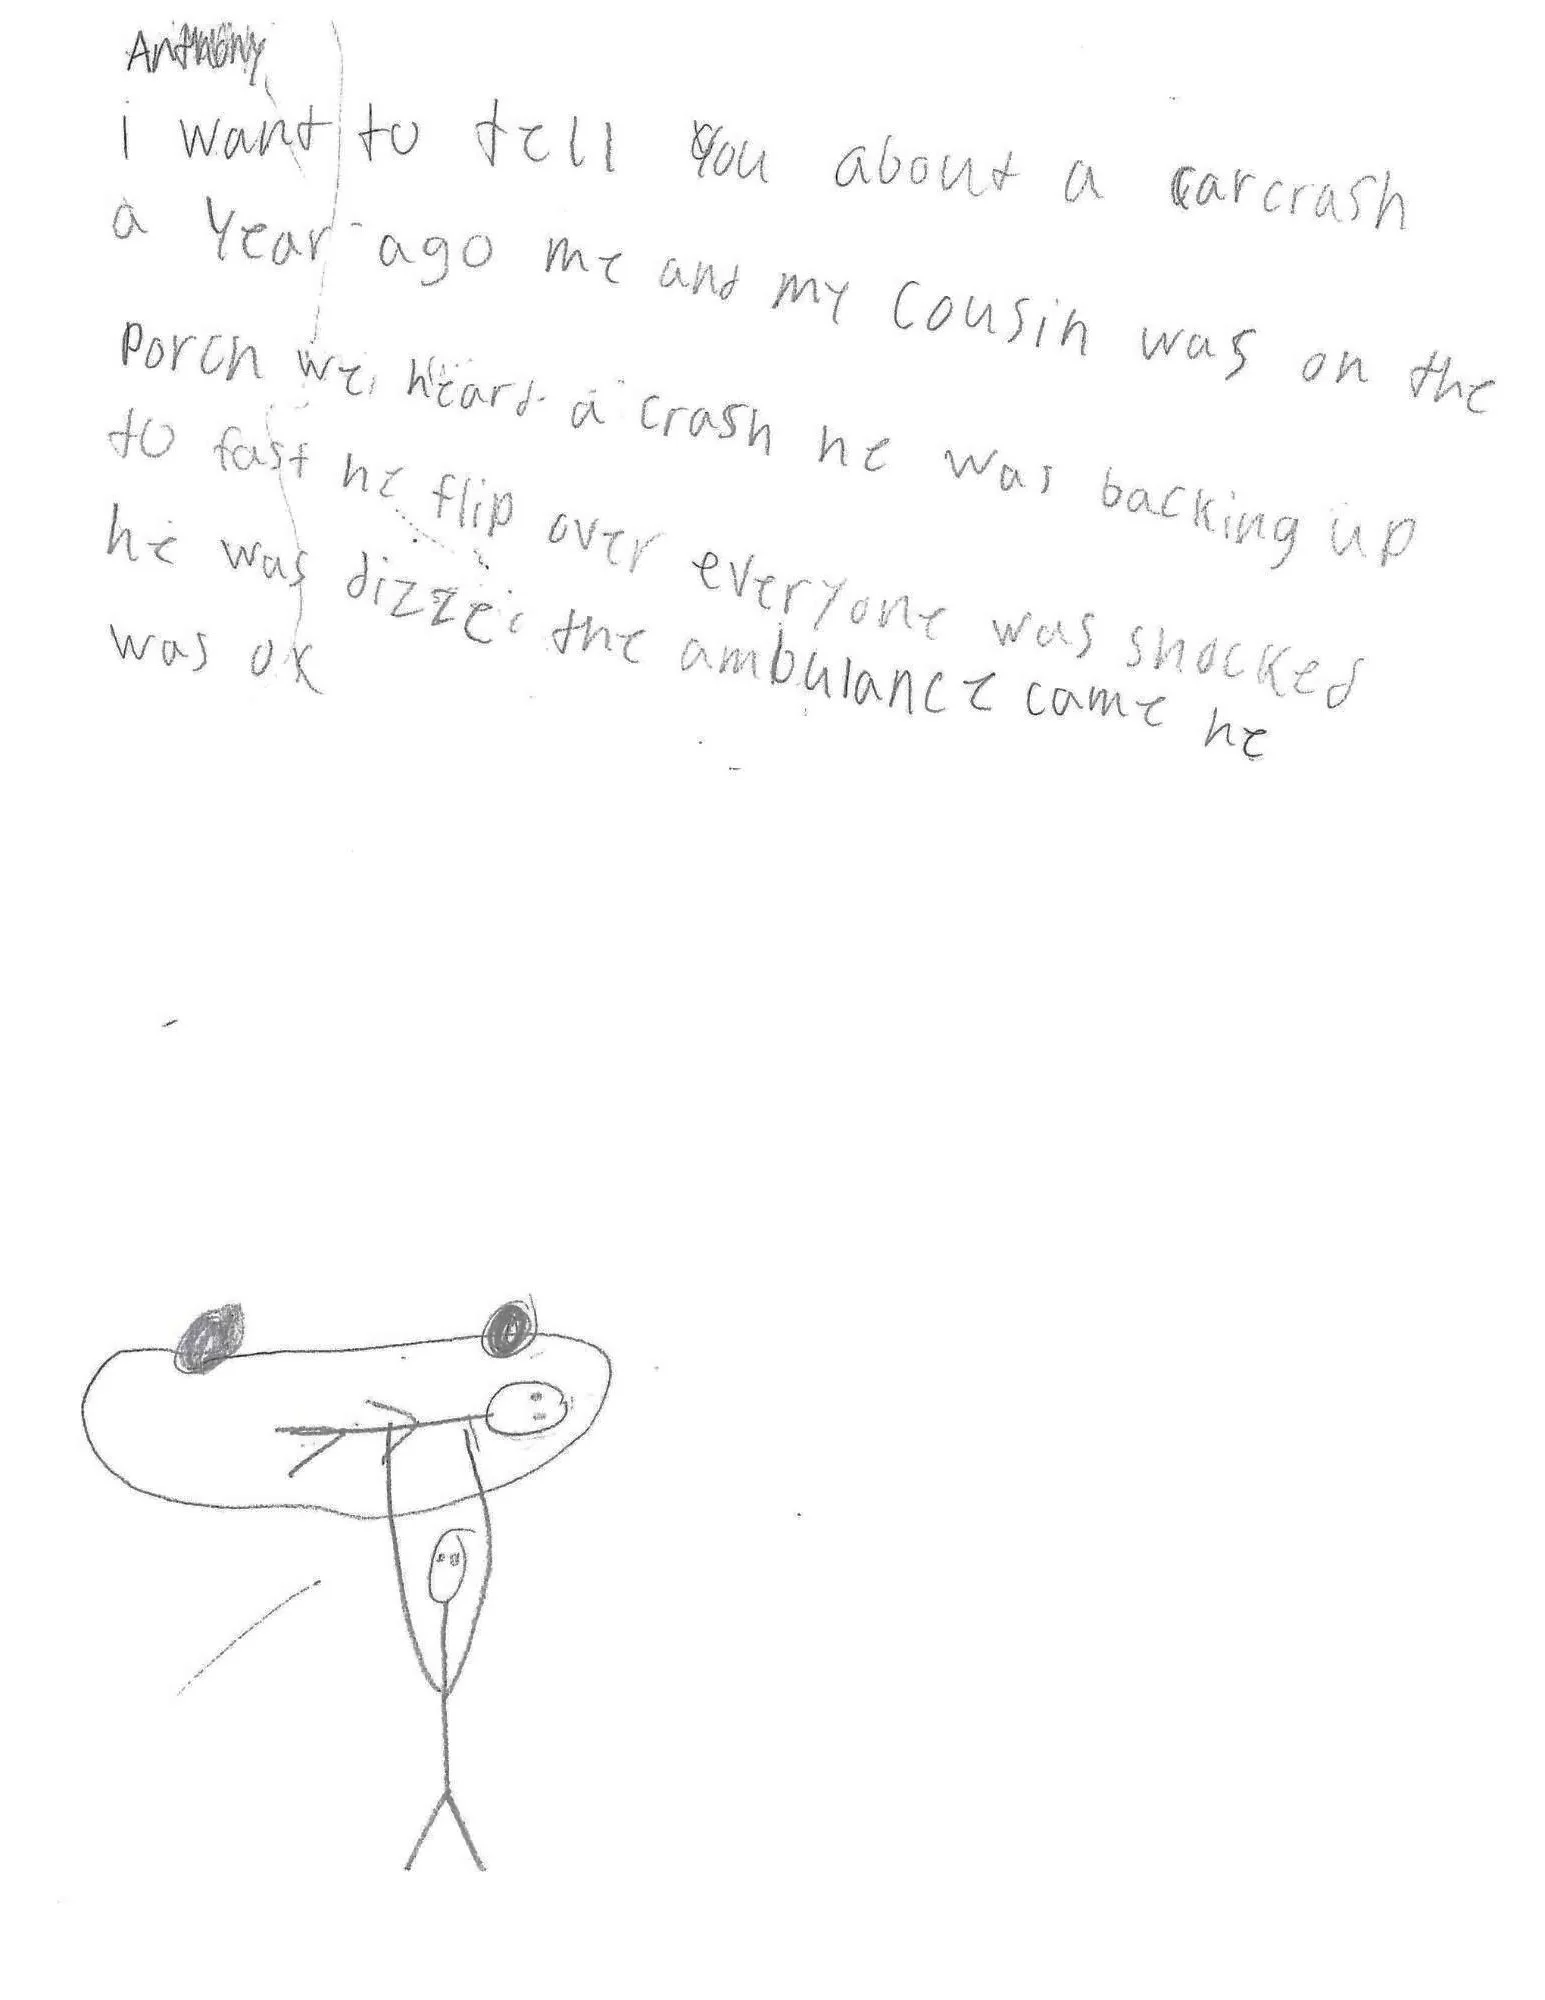 Anthony
i want to tell you about a carcrash
a Year ago me and my cousin was on the
porch we heard a crash he was backing up
to fast he flip over everyone was shocked
he was dizze the ambulance came he
was ok